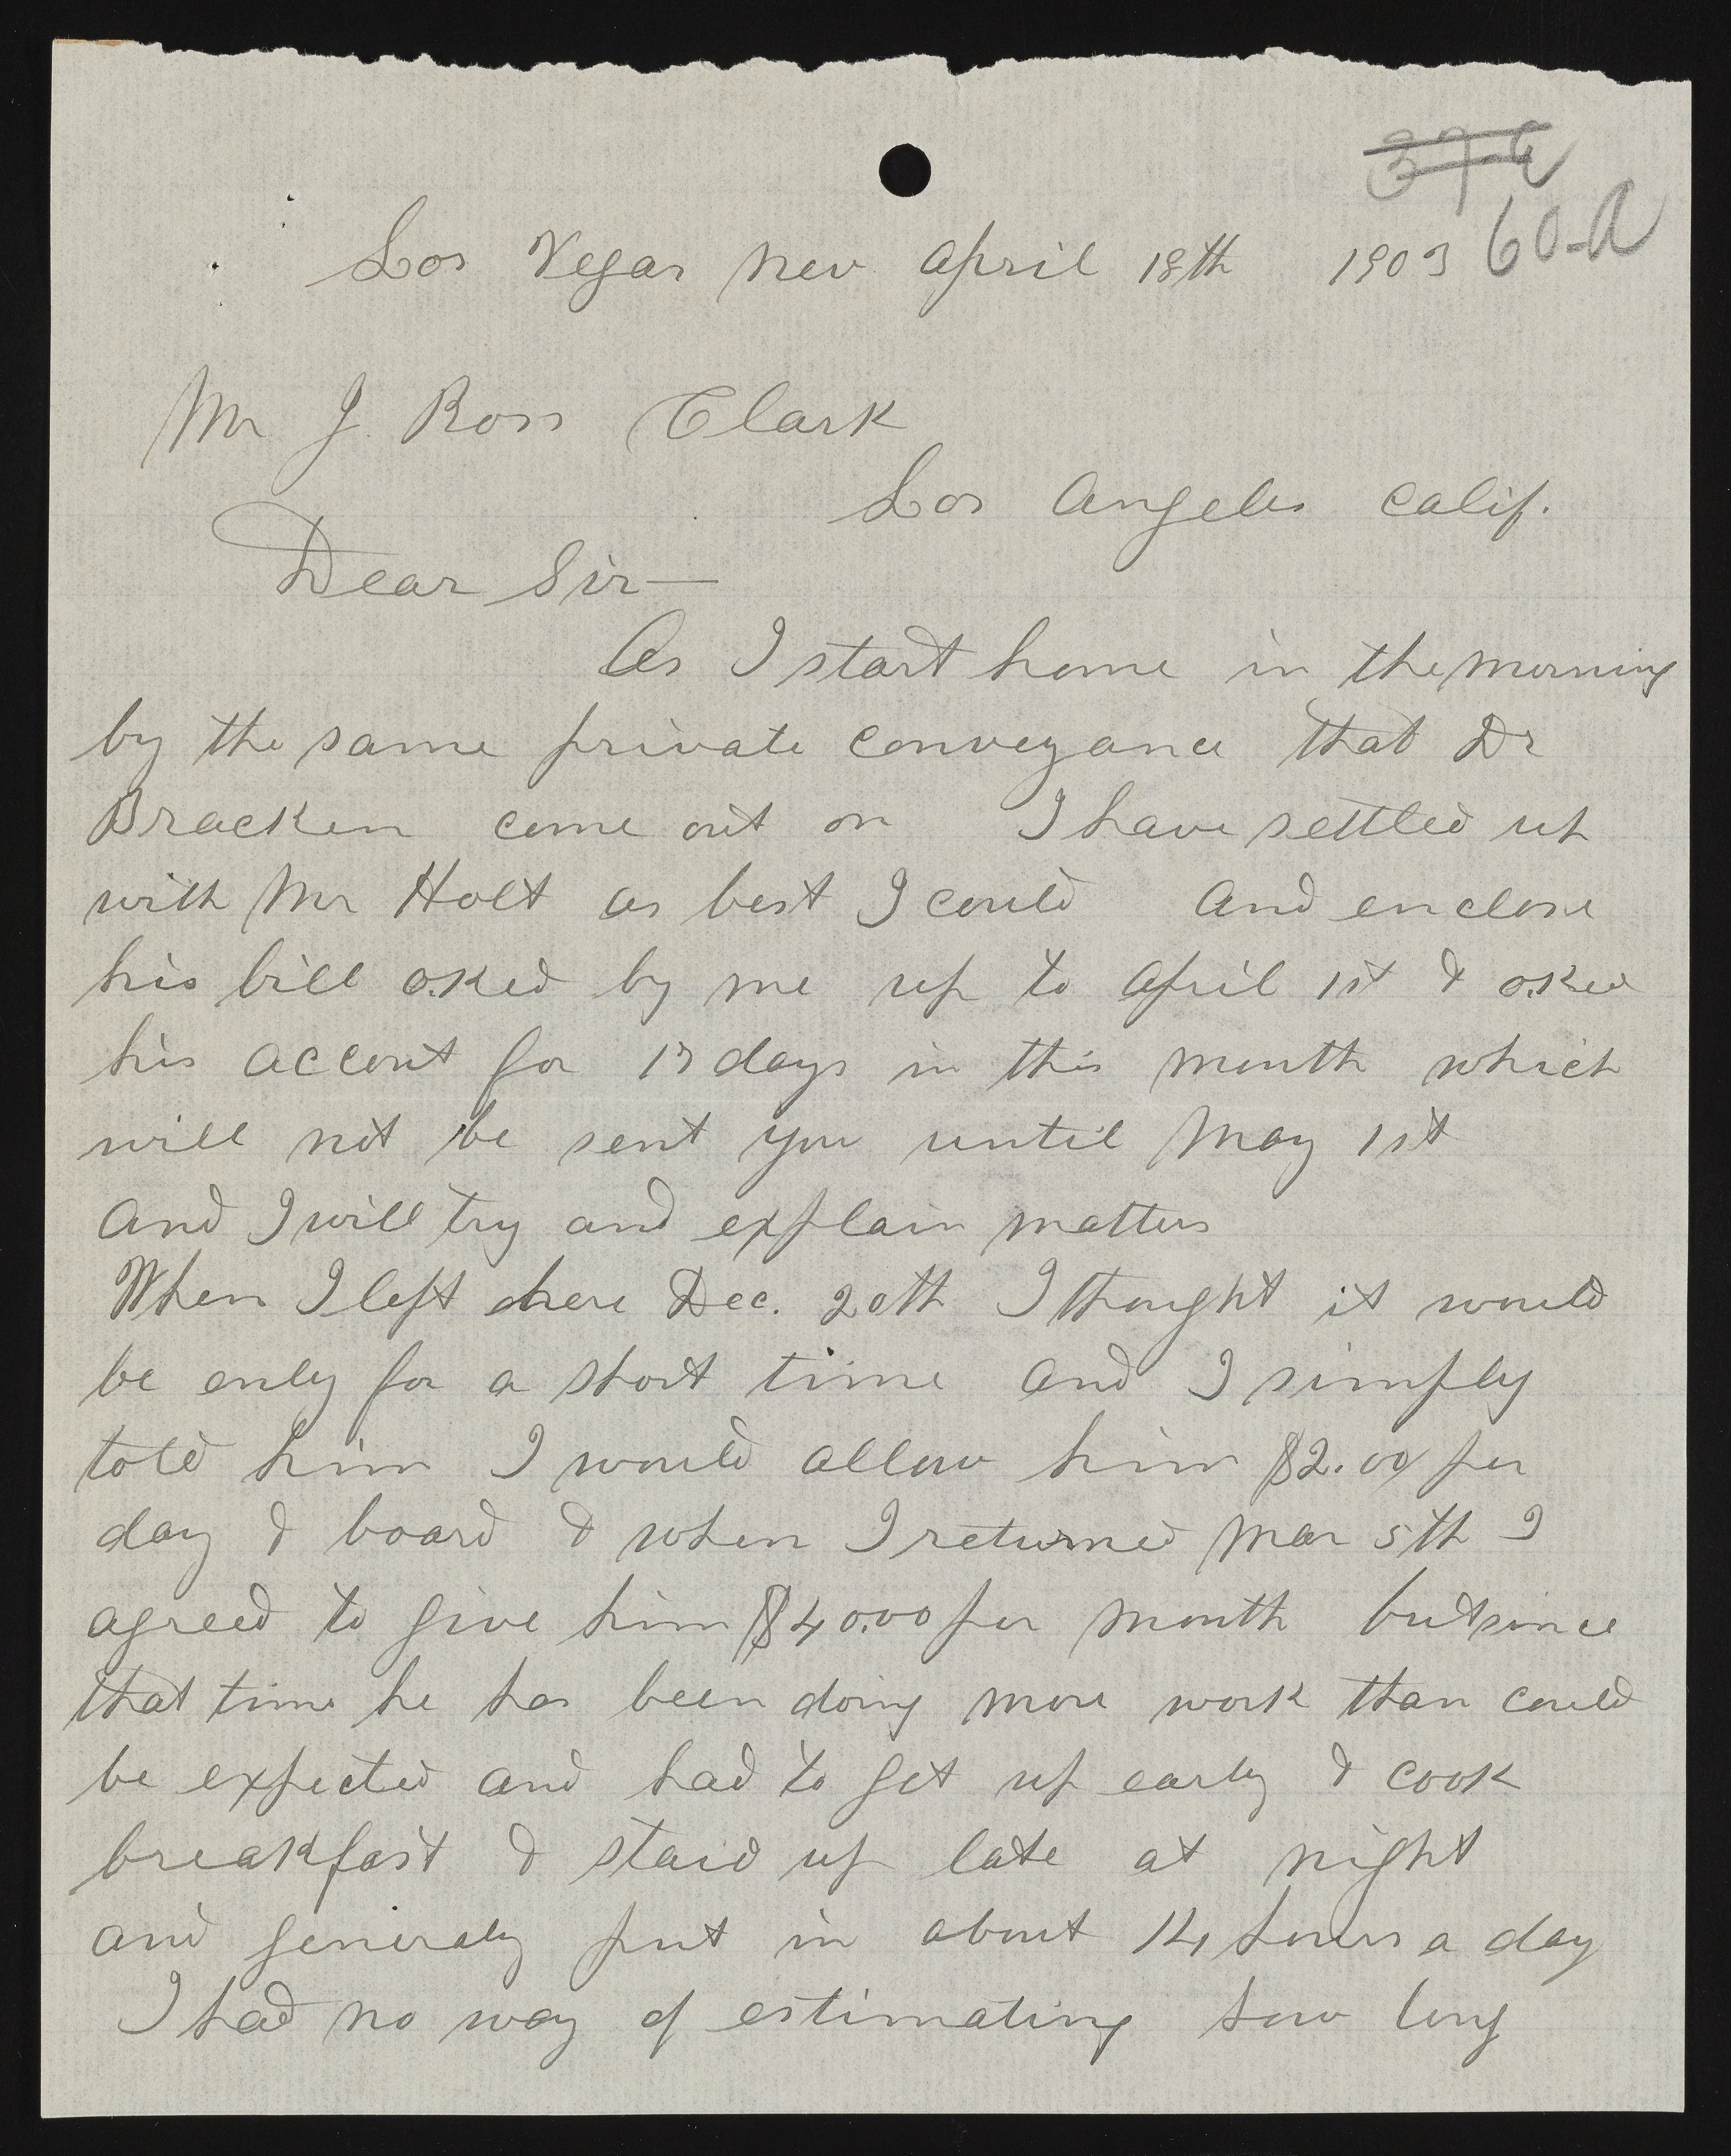 37-a
60-a
Los Vegas Nev April 18th 1903
Mr J. Ross Clark
Los Angeles Calif.
Dear Sir—
As I start home in the morning
by the same private conveyance that Dr
Bracken come out on I have settled up
with Mr Holt as best I could and enclose
his bill o.ked by me up to April 1st & o.ked
his accont for 17 days in this month which
will not be sent you until May 1st
and I will try and explain matters
When I left here Dec. 20th I thought it would
be only for a short time and I simply
told him I would allow him $2.00 per
day & board & when I returned Mar 5th I
agreed to give him $40.00 per month but since
that time he has been doing more work than could
be expected and had to get up early & cook
breakfast & staid up late at night
and generaly put in about 14 hours a day
I had no way of estimating how long